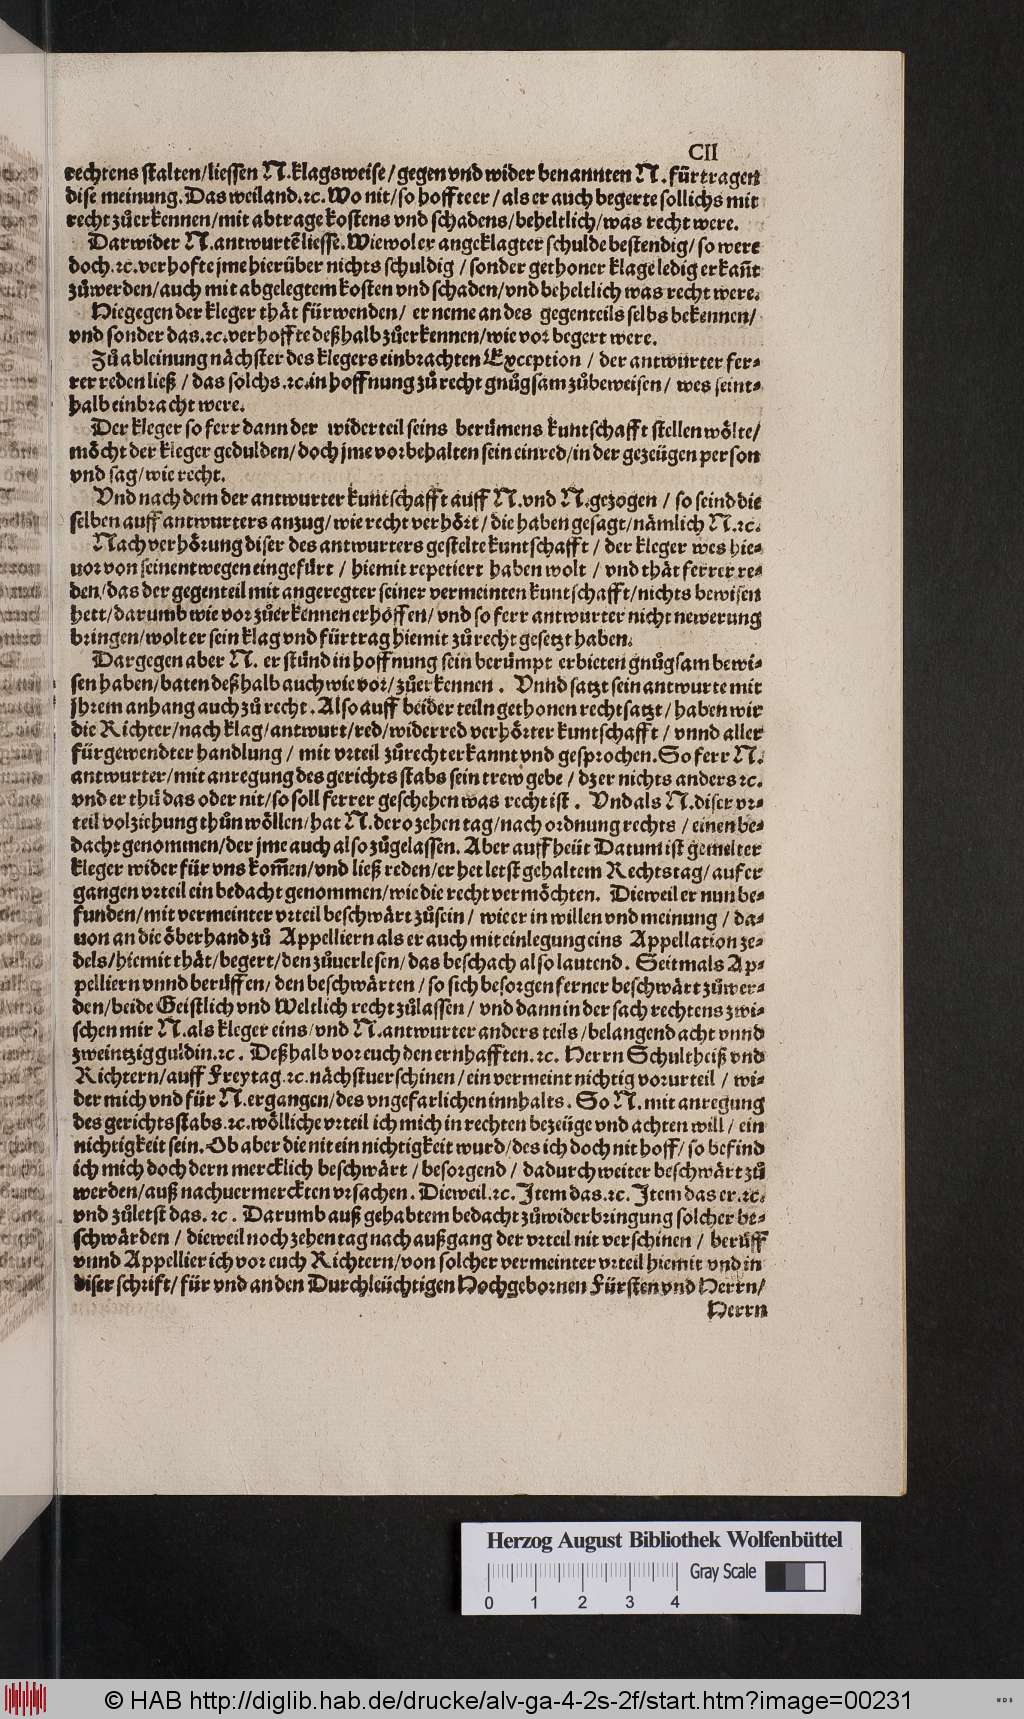 CII
rechtens stalten/liessen N.klagsweise/gegen vnd wider benannten N.fürtragen
dise meinung. Das weiland.ꝛc. Wo nit/so hoffte er/als er auch begerte sollichs mit
recht zůerkennen/mit abtrage kostens vnd schadens/beheltlich/was recht were.
Darwider N.antwurtẽ liesse. Wiewol er angeklagter schulde bestendig/so were
doch.ꝛc.verhofte jme hierüber nichts schuldig / sonder gethoner klage ledig erkañt
zůwerden/auch mit abgelegtem kosten vnd schaden/vnd beheltlich was recht were.
Hiegegen der kleger thåt fürwenden/ er neme an des gegenteils selbs bekennen/
vnd sonder das.ꝛc.verhoffte deßhalb zůerkennen/wie vor begert were.
Zů ableinung nåchster des klegers einbrachten Exception / der antwurter fer-
rer reden ließ / das solchs.ꝛc.in hoffnung zů recht gnůgsam zůbeweisen/ wes seint-
halb einbracht were.
Der kleger so ferr dann der widerteil seins berümens kuntschafft stellen wölte/
möcht der kleger gedulden/doch jme vorbehalten sein einred/in der gezeügen person
vnd sag/wie recht.
Vnd nach dem der antwurter kuntschafft auff N.vnd N.gezogen / so seind die
selben auff antwurters anzug/wie recht verhört/die haben gesagt/nåmlich N.ꝛc.
Nach verhörung diser des antwurters gestelte kuntschafft / der kleger wes hie-
uor von seinentwegen eingefürt / hiemit repetiert haben wolt / vnd thåt ferrer re-
den/das der gegenteil mit angeregter seiner vermeinten kuntschafft/nichts bewisen
hett/darumb wie vor zůerkennen erhoffen/vnd so ferr antwurter nicht newerung
bringen/wolt er sein klag vnd fürtrag hiemit zů recht gesetzt haben.
Dargegen aber N. er stünd in hoffnung sein berümpt erbieten gnůgsam bewi-
sen haben/baten deßhalb auch wie vor/zůerkennen . Vnnd satzt sein antwurte mit
jhrem anhang auch zů recht. Also auff beider teiln gethonen rechtsatzt/haben wir
die Richter/nach klag/antwurt/red/widerred verhörter kuntschafft / vnnd aller
fürgewendter handlung / mit vrteil zůrecht erkannt vnd gesprochen. So ferr N.
antwurter/mit anregung des gerichts stabs sein trew gebe / dz er nichts anders ꝛc.
vnd er thü das oder nit/so soll ferrer geschehen was recht ist . Vnd als N.diser vr-
teil volziehung thůn wöllen/hat N.dero zehen tag/nach ordnung rechts / einen be-
dacht genommen/der jme auch also zůgelassen. Aber auff heüt Datum ist gemelter
kleger wider für vns kom̃en/vnd ließ reden/er het letst gehaltem Rechtstag/auf er
gangen vrteil ein bedacht genommen/wie die recht vermöchten. Dieweil er nun be-
funden/mit vermeinter vrteil beschwårt zůsein / wie er in willen vnd meinung / da-
uon an die öberhand zů Appelliern als er auch mit einlegung eins Appellation ze-
dels/hiemit thåt/begert/den zůuerlesen/das beschach also lautend. Seitmals Ap-
pelliern vnnd berüffen/den beschwårten/so sich besorgen ferner beschwårt zůwer-
den/beide Geistlich vnd Weltlich recht zůlassen / vnd dann in der sach rechtens zwi-
schen mir N.als kleger eins/vnd N.antwurter anders teils/belangend acht vnnd
zweintzig guldin.ꝛc. Deßhalb vor euch den ernhafften.ꝛc. Herrn Schultheiß vnd
Richtern/auff Freytag.ꝛc.nåchstuerschinen/ein vermeint nichtig vorurteil / wi-
der mich vnd für N.ergangen/des vngefarlichen innhalts. So N.mit anregung
des gerichts stabs.ꝛc.wölliche vrteil ich mich in rechten bezeüge vnd achten will / ein
nichtigkeit sein. Ob aber die nit ein nichtigkeit wurd/des ich doch nit hoff/so befind
ich mich doch dern mercklich beschwårt/besorgend / dadurch weiter beschwårt zů
werden/auß nachuermerckten vrsachen. Dieweil.ꝛc. Item das.ꝛc. Item das er.ꝛc.
vnd zůletst das. ꝛc . Darumb auß gehabtem bedacht zůwiderbringung solcher be-
schwården / dieweil noch zehen tag nach außgang der vrteil nit verschinen / berüff
vnnd Appellier ich vor euch Richtern/von solcher vermeinter vrteil hiemit vnd in
diser schrift/für vnd an den Durchleüchtigen Hochgebornen Fürsten vnd Herrn/
Herrn
Herzog August Bibliothek Wolfenbüttel
Gray Scale
0 1 2 3 4
© HAB http://diglib.hab.de/drucke/alv-ga-4-2s-2f/start.htm?image=00231